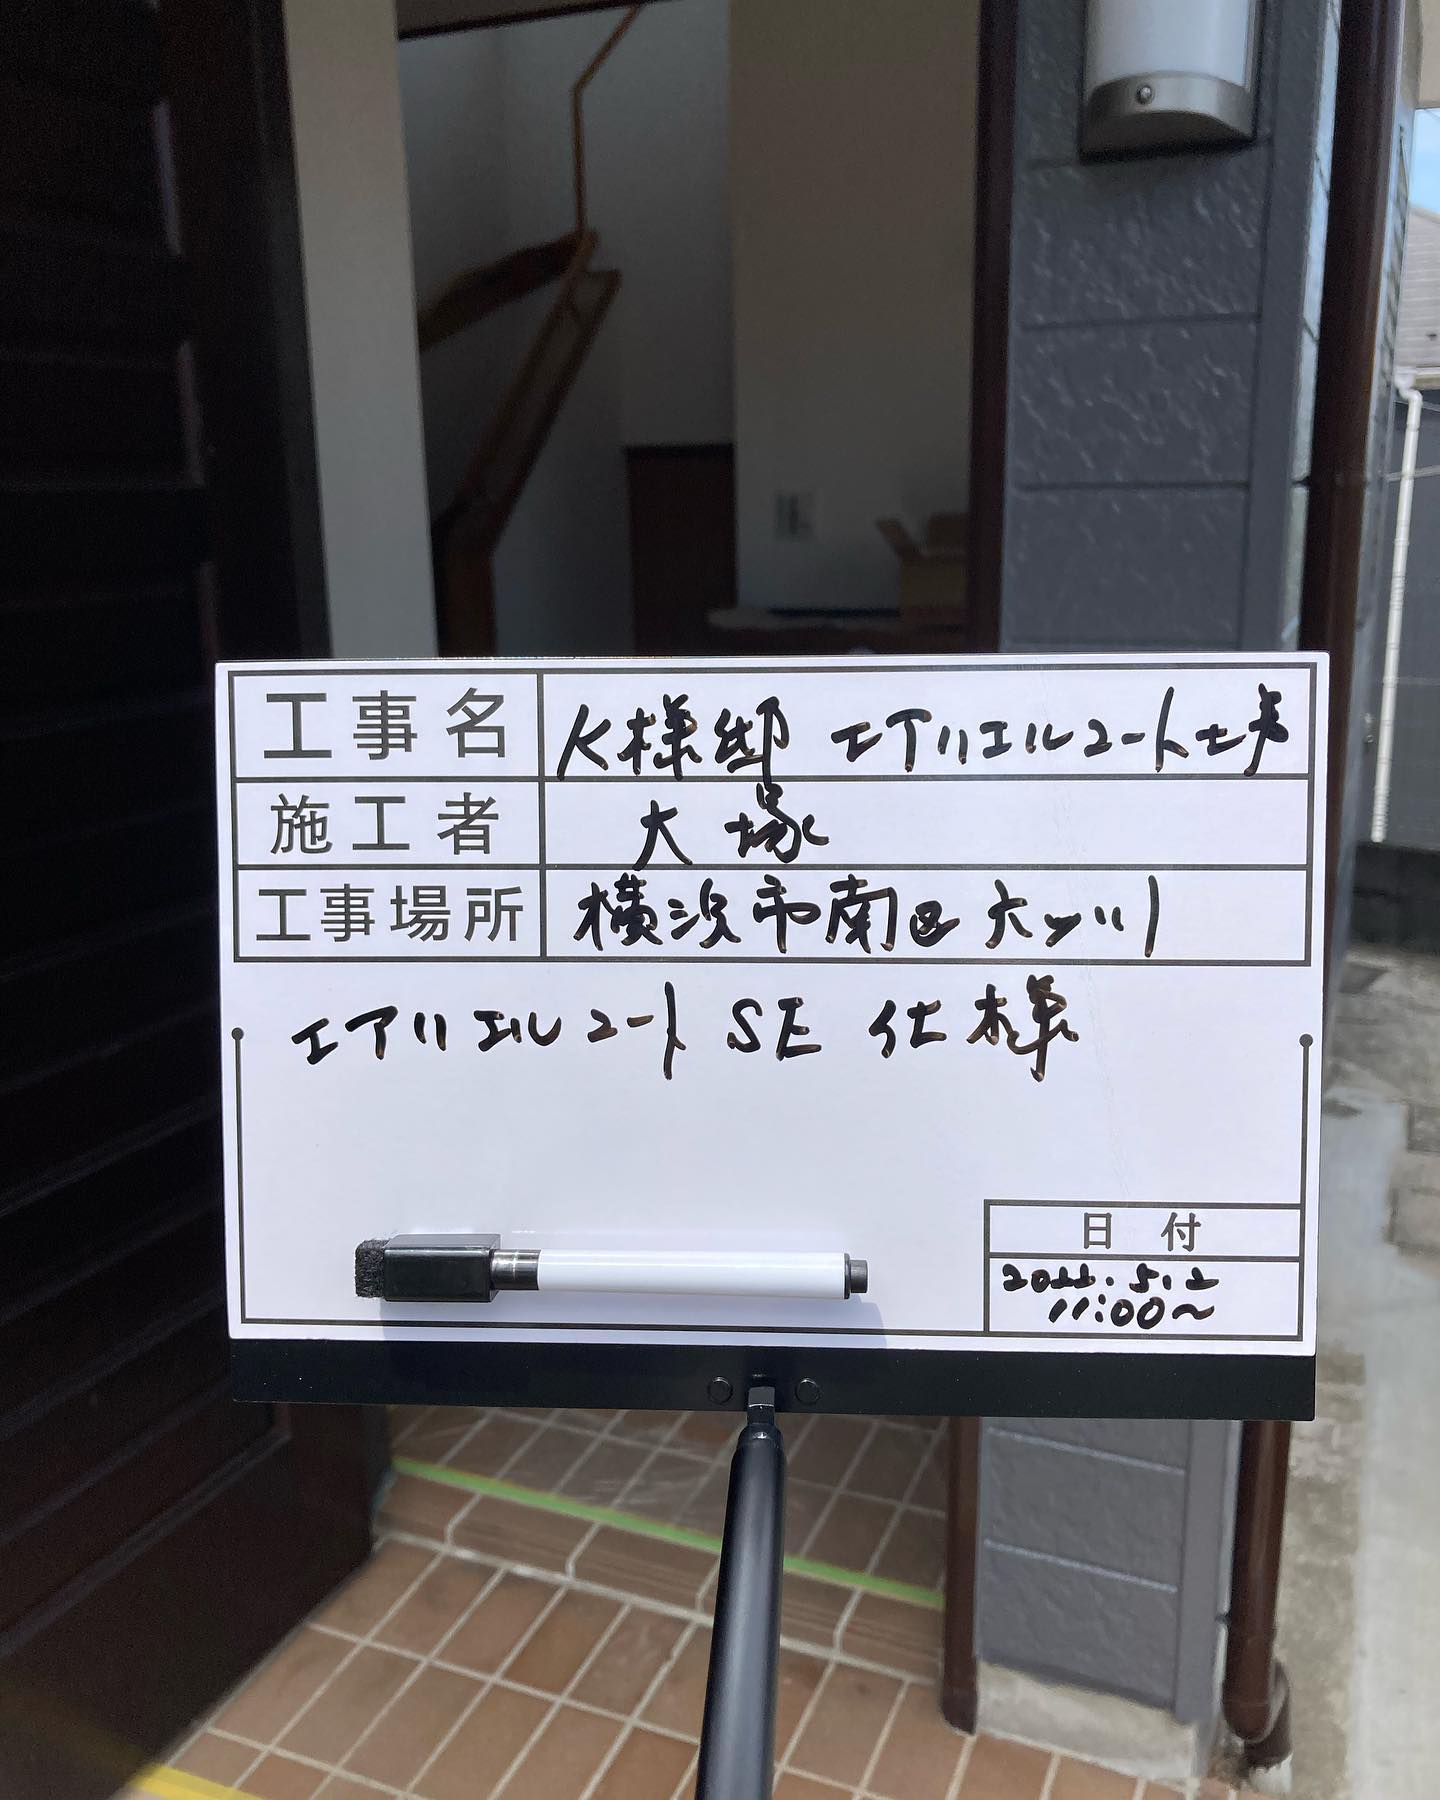 工事名 K様邸 エアリエルコート工事
施工者 大塚
工事場所 横浜市南区六ツ川
エアリエルコート SE 仕様
日付
2022.5.2
11:00〜